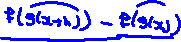 f(g(x+h)) - f(g(x))